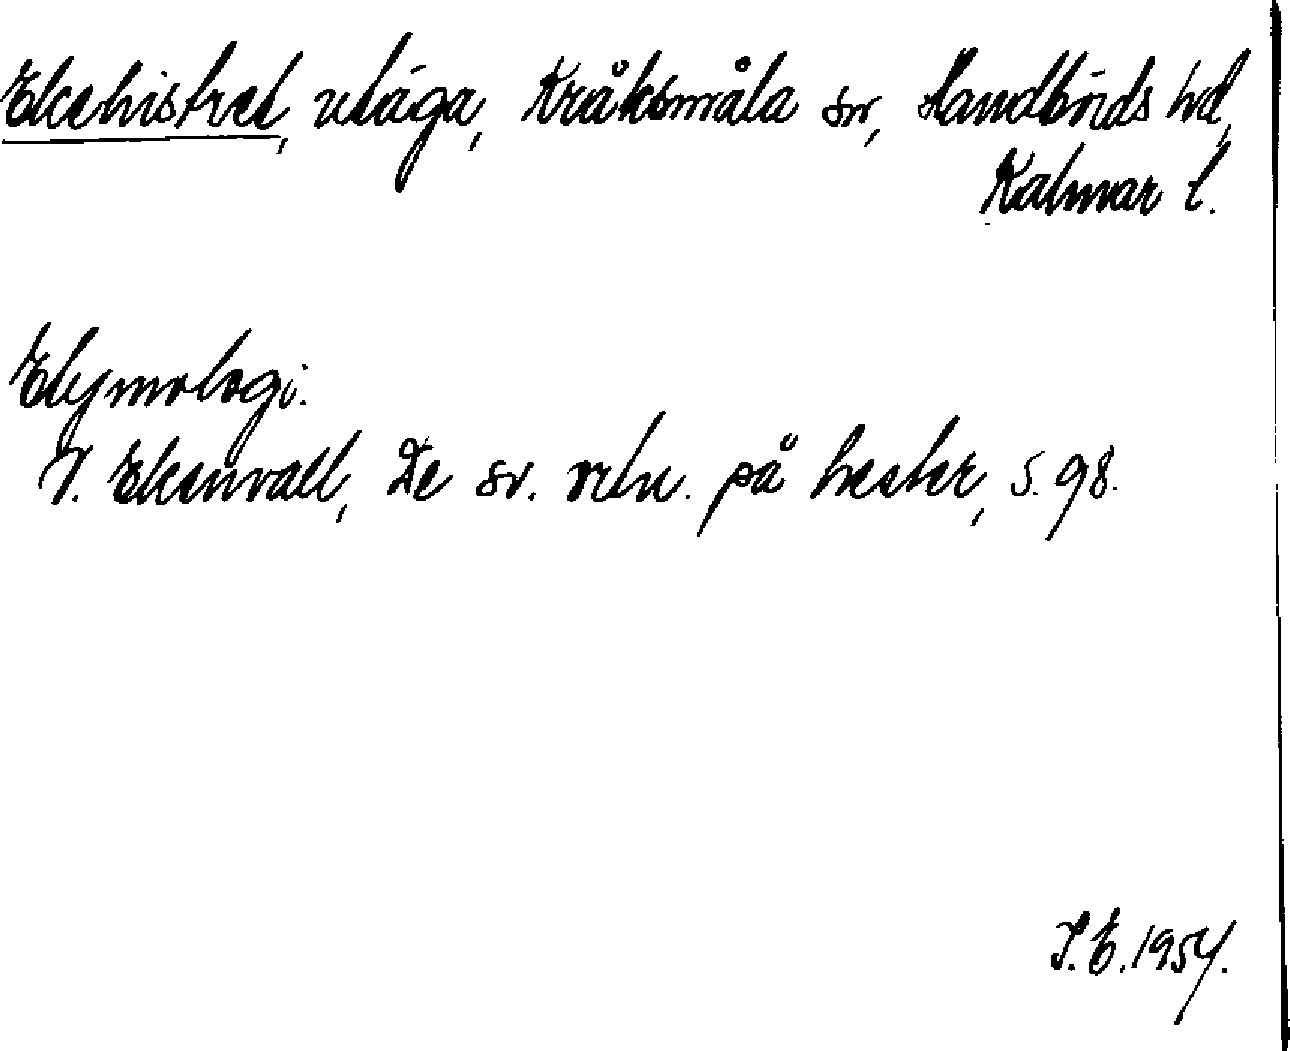 Ekehistret, utäga, Kråksmåla sn, Handbörds hd,
Kalmar l.
Etymologi.
V. Ekenvall, De sv. ortn. på hester, s. 98.
1954.